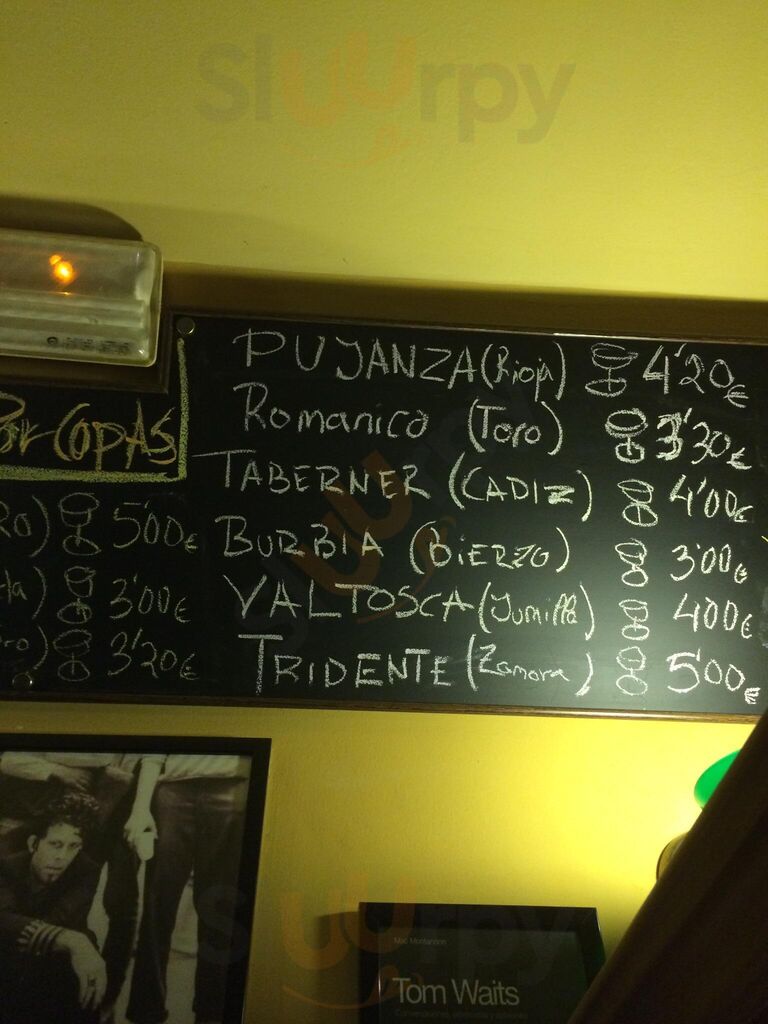 Sluurpy
PUJANZA (Rioja) 4'20€
Romanico (Toro) 3'30€
Por COPAS
TABERNER (CADIZ) 4'00€
5'00€
BURBIA (BIERZO) 3'00€
3'00€
VALTOSCA (Jumilla) 400€
3'20€
TRIDENTE (Zamora) 5'00€
Mac Montandon
Tom Waits